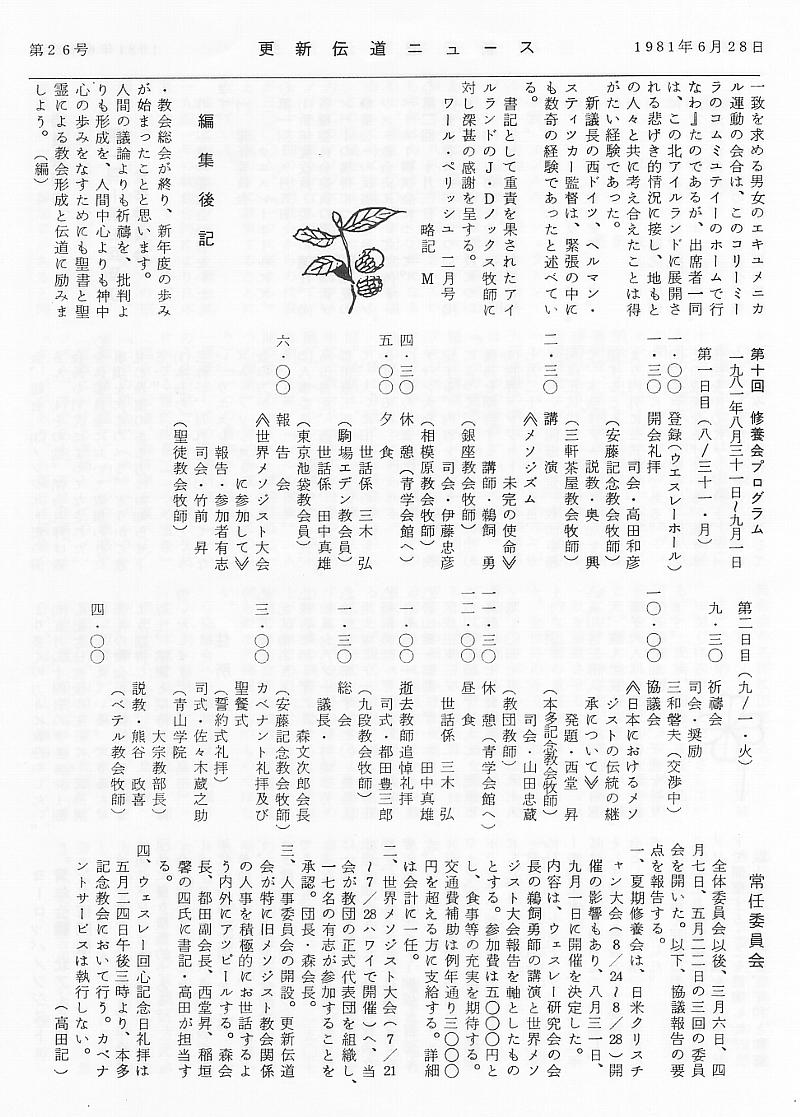 第26号
更新伝道ニュース
1981年6月28日
一致を求める男女のエキュメニカ
ル運動の会合は、このコリーミー
ラのコムミュテイーのホームで行
なわ』たのであるが、出席者一同
は、この北アイルランドに展開さ
れる悲げき的情況に接し、地もと
の人々と共に考え合えたことは得
がたい経験であった。
新議長の西ドイツ、ヘルマン・
スティツカー監督は、緊張の中に
も数奇の経験であったと述べてい
る。
書記として重責を果されたアイ
ルランドのJ・Dノックス牧師に
対し深甚の感謝を呈する。
ワール・ペリッシュ 二月号
略記 M
編集後記
・教会総会が終り、新年度の歩み
が始まったことと思います。
人間の議論よりも祈禱を、批判よ
りも形成を、人間中心よりも神中
心の歩みをなすためにも聖書と聖
霊による教会形成と伝道に励みま
しょう。 (編)
第十回 修養会プログラム
一九八一年八月三十一日〜九月一日
第一日目(八/三十一・月)
一・〇〇 登録(ウエスレーホール)
一・三〇 開会礼拝
司会・高田和彦
(安藤記念教会牧師)
説教・奥 興
(三軒茶屋教会牧師)
二・三〇 講 演
《メソジズム
未完の使命》
講師・鵜飼 勇
(銀座教会牧師)
司会・伊藤忠彦
(相模原教会牧師)
四・三〇 休 憩(青学会館へ)
五・〇〇 夕 食
世話係 三木 弘
(駒場エデン教会員)
世話係 田中真雄
(東京池袋教会員)
六・〇〇 報 告 会
《世界メソジスト大会
に参加して》
報告・参加者有志
司会・竹前 昇
(聖徒教会牧師)
第二日目(九/一・火)
九・三〇 祈禱会
司会・奨励
三和磐夫(交渉中)
一〇・〇〇 協議会
《日本におけるメソ
ジストの伝統の継
承について》
発題・西堂 昇
(本多記念教会牧師)
司会・山田忠蔵
(教団教師)
一一・三〇 休 憩(青学会館へ)
一二・〇〇 昼 食
世話係 三木 弘
田中真雄
一・〇〇 逝去教師追悼礼拝
司式・都田豊三郎
(九段教会牧師)
一・三〇 総 会
議長・
森文次郎会長
(安藤記念教会牧師)
三・〇〇 カベナント礼拝及び
聖餐式
(誓約式礼拝)
司式・佐々木蔵之助
(青山学院
大宗教部長)
説教・熊谷 政喜
(ベテル教会牧師)
四・〇〇
常任委員会
全体委員会以後、三月六日、四
月七日、五月二二日の三回の委員
会を開いた。以下、協議報告の要
点を報告する。
一、夏期修養会は、日米クリスチ
ャン大会(8/24〜8/28)開
催の影響もあり、八月三一日、
九月一日に開催を決定した。
内容は、ウェスレー研究会の会
長の鵜飼勇師の講演と世界メソ
ジスト大会報告を軸としたもの
とする。参加費は五〇〇〇円と
し、食事等の充実を期待する。
交通費補助は例年通り三〇〇〇
円を超える方に支給する。詳細
は会計に一任。
二、世界メソジスト大会(7/21
〜7/28ハワイで開催)へ、当
会が教団の正式代表団を組織し、
一七名の有志が参加することを
承認。団長・森会長。
三、人事委員会の開設。更新伝道
会が特に旧メソジスト教会関係
の人事を積極的にお世話するよ
う内外にアツピールする。森会
長、都田副会長、西堂昇、稲垣
馨の四氏に書記・高田が担当す
る。
四、ウェスレー回心記念日礼拝は
五月二四日午後三時より、本多
記念教会において行う。カベナ
ントサービスは執行しない。
(高田記)